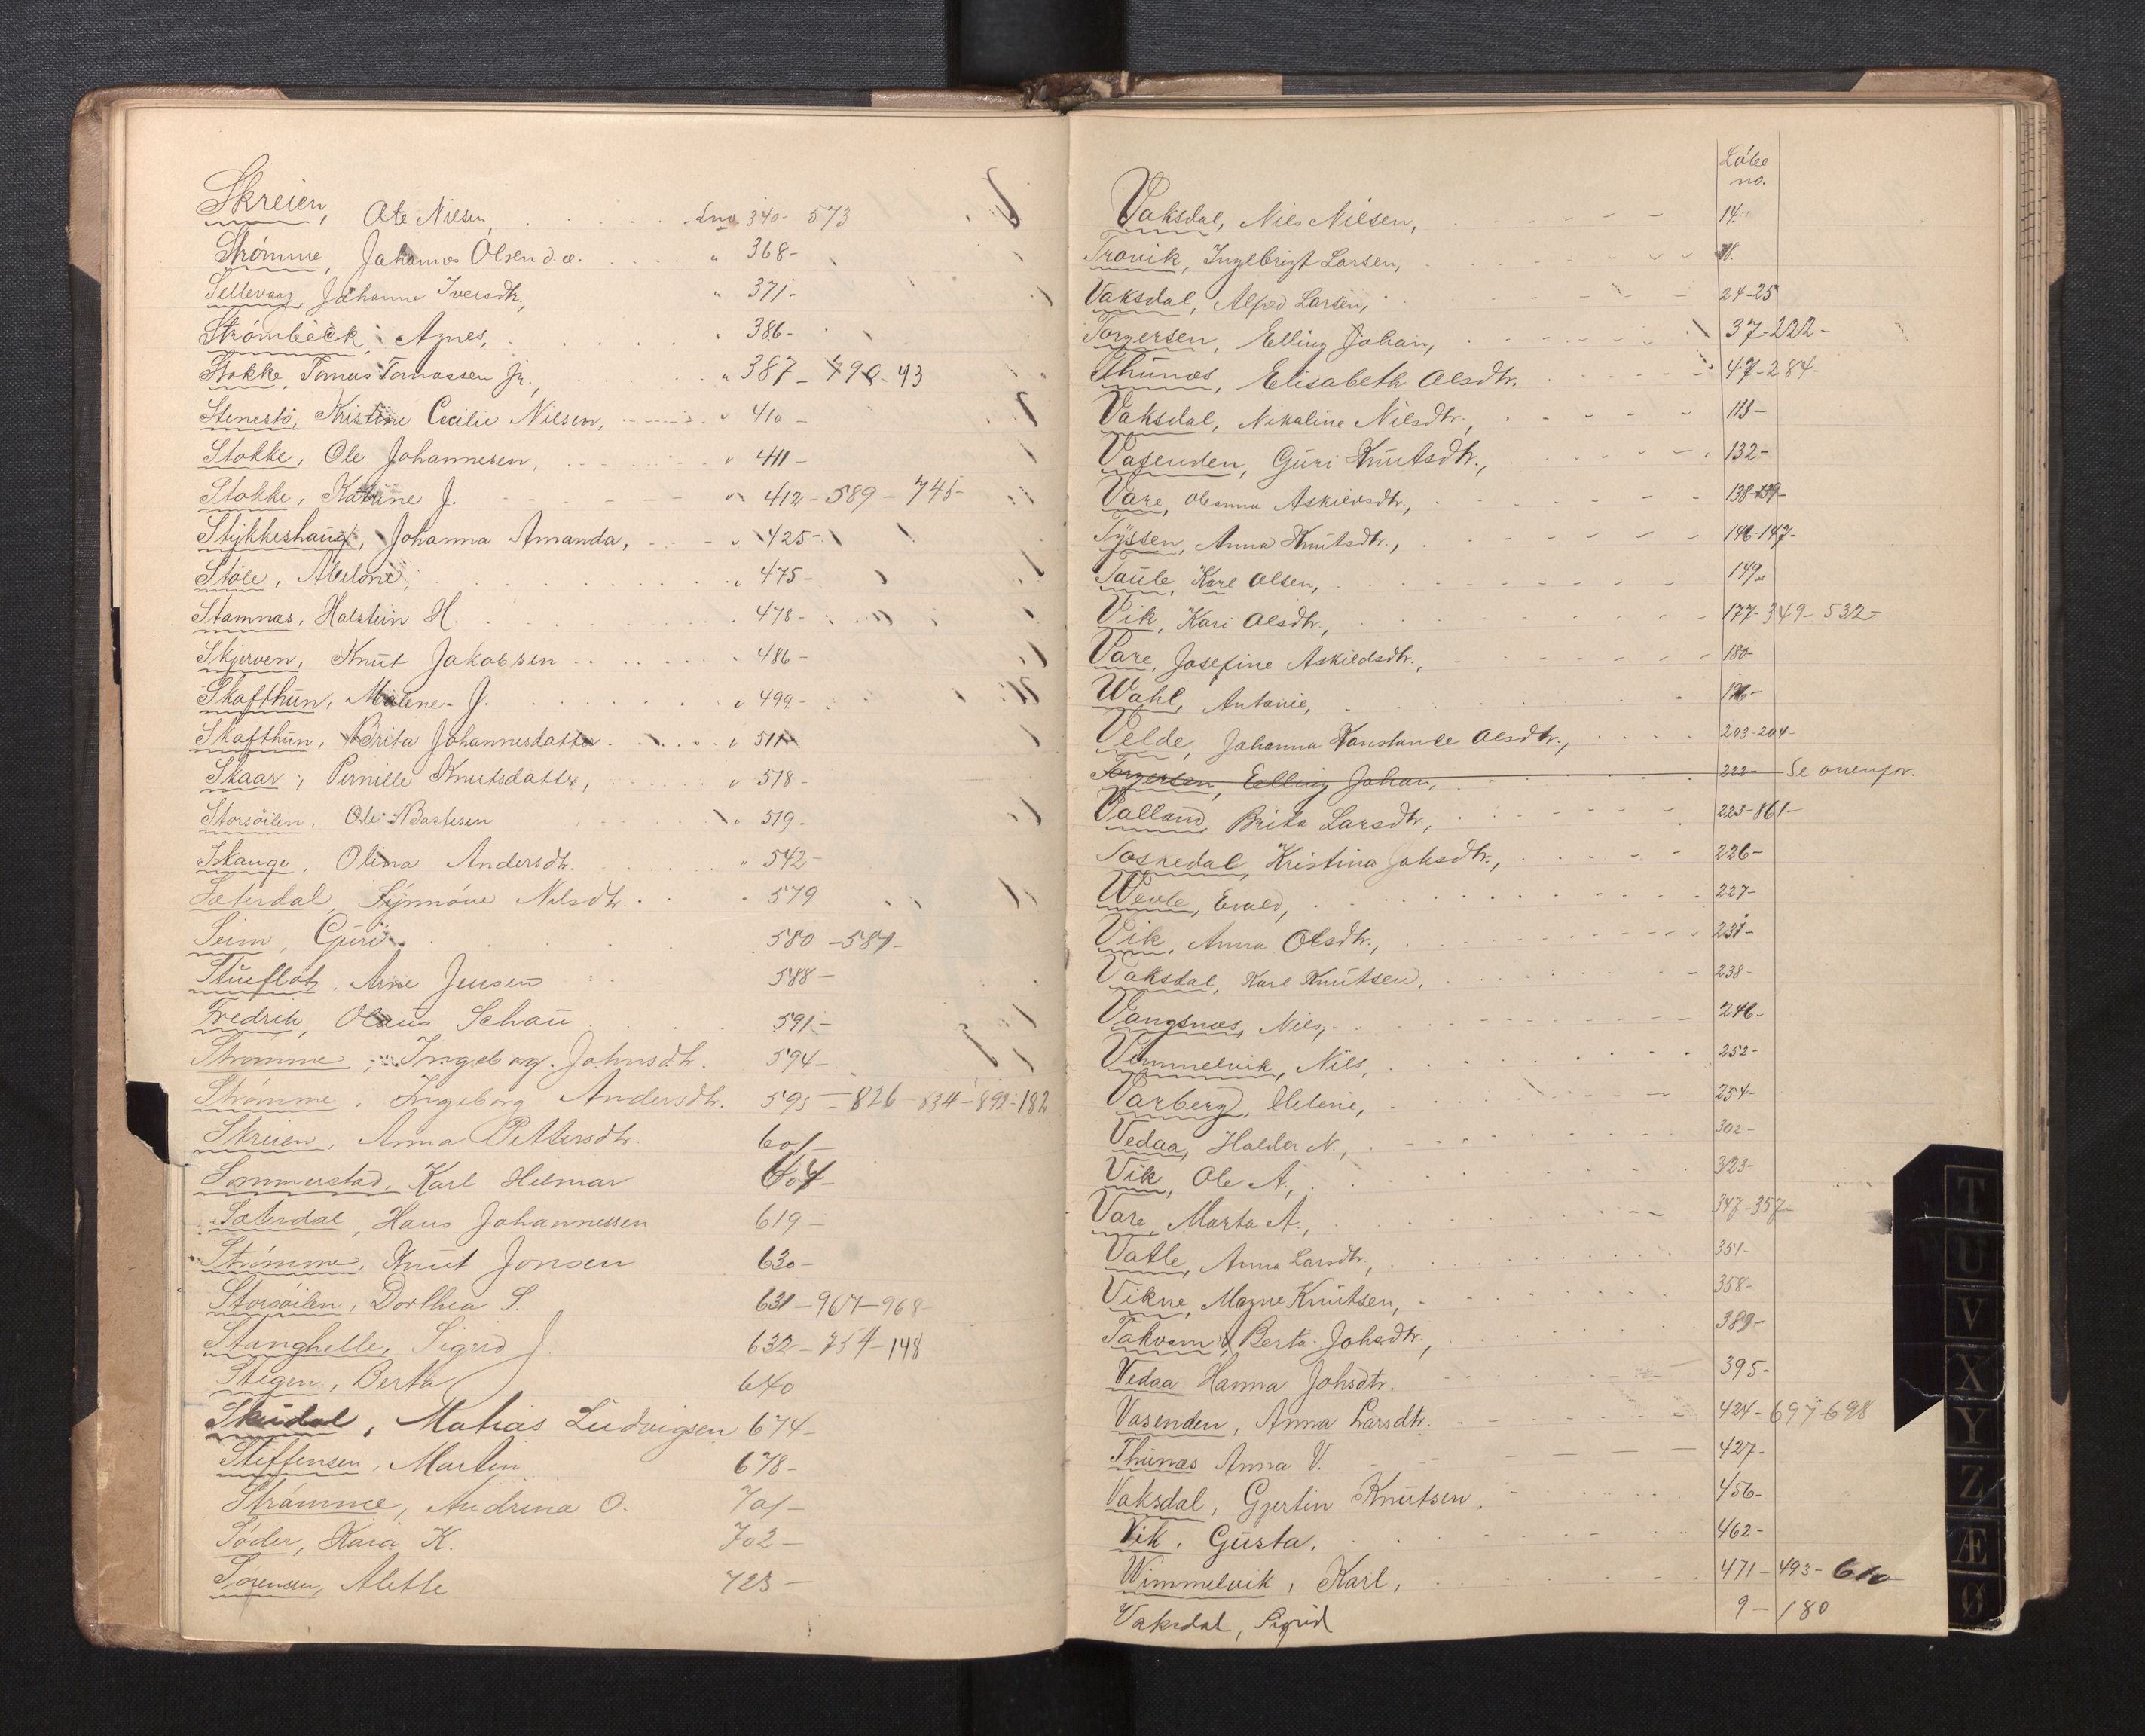 Skreien, Ole Nilsen, Lno 340 - 573
Strømme, Johannes Olsen d.æ. " 368 -
Sellevaag, Johanne Iversdtr, " 371 -
Strömbeck, Agnes, " 386 -
Stokke, Tomas Tomassen Jr., " 387 - 490 - 93
Stenestö, Kristine Cecilie Nilsen, " 410 -
Stokke, Ole Johannesen, " 411 -
Stokke, Katrine J. " 412 - 589 - 745 -
Stykkeshaug, Johanna Amanda, " 425 -
Støle, " 475 -
Stamnæs, Halstein H. " 478 -
Skjerven, Knut Jakobsen " 486 -
Skafthun, Malene J. " 499 -
Skafthun, Brita Johannesdatter " 511
Skaar, Pernille Knutsdatter, " 518 -
Storsöilen, Ole Bastesen " 519 -
Skauge, Olina Andersdtr. " 542 -
Sæterdal, Synnöve Nilsdtr. " 579
Seim, Guri 580 - 581 -
Stueflot, Arne Jensen 588 -
Fredrik, Olaus Schau 591 -
Strømme, Ingeborg Johnsdtr. 594 -
Strømme, Ingeborg Andersdtr. 595 - 826 - 834 - 892 - 182
Skreien, Anna Pettersdtr. 601 -
Sommerstad, Karl Hilmar 604 -
Sæterdal, Hans Johannessen 619 -
Strömme, Knut Jonsen 630 -
Storsöilen, Dorthea S. 631 - 967 - 968
Stanghelle, Sigrid J. 632 - 754 - 148
Stigen, Berta 640
Skeidal, Matias Ludvigsen 674 -
Steffensen, Martin 678 -
Strømme, Andrina O. 701 -
Söder, Kaia K. 702 -
Sørensen, Alette 723 -
Löbe
no.
Vaksdal, Nils Nilsen, 14.
Trovik, Ingebrigt Larsen,
Vaksdal, Alfred Larsen, 24 - 25
Torgersen, Elling Johan, 37 - 222 -
Thunæs, Elisabeth Olsdtr. 47 - 284 -
Vaksdal, Nikoline Nilsdtr, 113 -
Vasenden, Guri Knutsdtr., 132 -
Vare, Oleanna Askildsdtr., 138 - 139 -
Tyssen, Anna Knutsdtr., 146 - 147 -
Taule, Karl Olsen, 149
Vik, Kari Olsdtr., 177 - 349 - 532 -
Vare, Josefine Askildsdtr., 180 -
Wahl, Antonie,
Velde, Johanna Konstance Olsdtr., 203 - 204 -
Torgersen, Elling Johan, 222 - Se ovenfor.
Valland, Brita Larsdtr., 223 - 861 -
Tosnedal, Kristina Johsdtr., 226 -
Wevle, Evald, 227 -
Vik, Anna Olsdtr., 231 -
Vaksdal, Karl Knutsen, 238 -
Vangsnæs, Nils, 246 -
Vimmelvik, Nils, 252 -
Varberg, Helene, 254 -
Vedaa, Haldor N., 302 -
Vik, Ole A., 323 -
Vare, Marta A., 347 - 357 -
Vatle, Anna Larsdtr., 351 -
Vikne, Magne Knutsen, 358 -
Takvam, Berta Johsdtr., 389 -
Vedaa Hanna Johsdtr. 395 -
Vasenden, Anna Larsdtr. 424 - 697 - 698
Thunæs Anna V. 427 -
Vaksdal, Gjertin Knutsen. 456 -
Vik, Gusta. 462 -
Wimmelvik, Karl, 471 - 493 - 610
Vaksdal, Sigrid 9 - 180
T
U
V
X
Y
Z
Æ
Ø